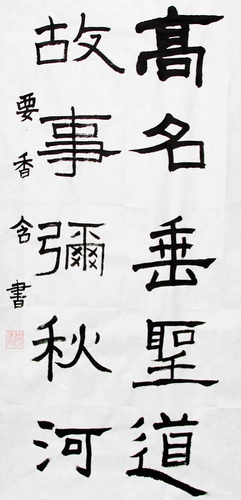 高名垂聖道
故事彌秋河
要香含書